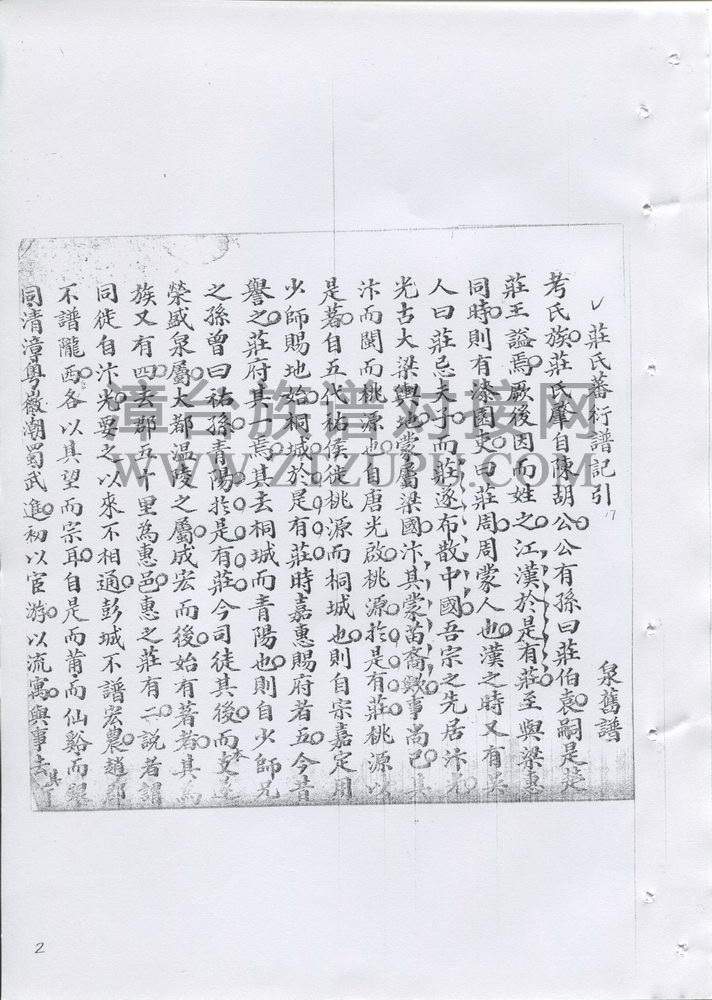 莊氏蕃衍譜記引
泉舊譜
考氏族莊氏肇自陳胡公公有孫曰莊伯袁嗣是楚
莊王謚焉厥後因而姓之江漢於是有莊至與梁惠
同時則有漆園吏曰莊周周蒙人也漢之時又有吳
人曰莊忌夫子而莊遂布散中國吾宗之先居汴光
光古大梁輿地蒙屬梁國汴其蒙苗裔歟事尚已
汴而閩而桃源也自唐光啟桃源於是有莊桃源以
是著自五代祐侯徙桃源而桐城也則自宗嘉定用
少師賜地始桐城於是有莊時嘉惠賜府者五今昔
譽之莊府其一焉其去桐城而青陽也則自少師兄
之孫曾曰祐孫青陽於是有莊今司徒其後而支
榮盛泉屬大都溫陵之屬成宏而後始有著者其為
族又有四去郡五十里為惠邑惠之莊有二說者謂
同徙自汴光要之以來不相通彭城不譜宏農趙郡
不譜隴西各以其望而宗耳自是而莆而仙谿而
同清漳粵嶺潮蜀武進初以官游以流寓與事去
漳台族谱对接网
WWW.ZTZUPU.COM
2